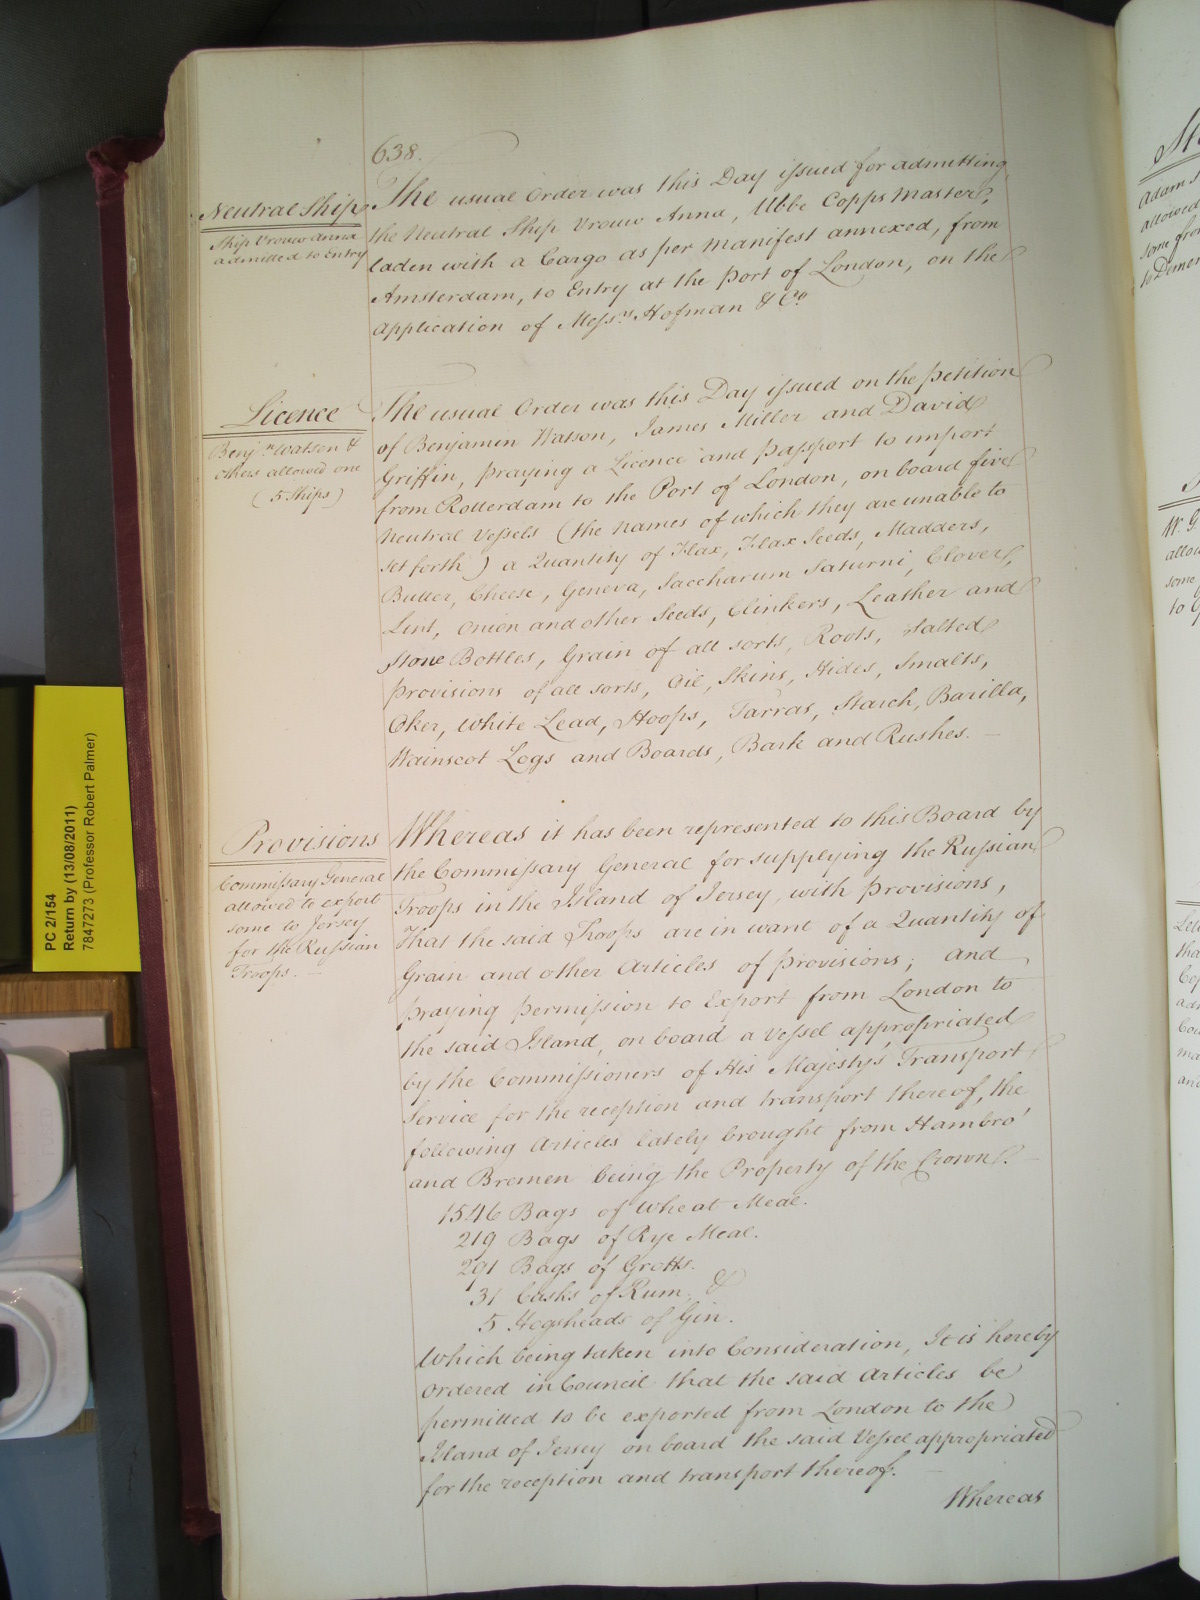 638.
Neutral Ship
Ship Vrouw Anna
admitted to Entry
The usual Order was this Day issued for admitting
the Neutral Ship Vrouw Anna, Ubbe Copps Master,
laden with a Cargo as per Manifest annexed, from
Amsterdam, to Entry at the Port of London, on the
Application of Messrs Hofman & Co
Licence
Benjn Watson &
others allowed one
(5 Ships)
The usual Order was this Day issued on the petition
of Benjamin Watson, James Miller and David
Griffin, praying a Licence and Passport to import
from Rotterdam to the Port of London, on board five
Neutral Vessels (the names of which they are unable to
set forth) a Quantity of Flax, Flax Seeds, Madders,
Butter, Cheese, Geneva, Saccharum Saturni, Clover,
Lint, Onion and other Seeds, Clinkers, Leather and
Stone Bottles, Grain of all sorts, Roots, Salted
provisions of all sorts, Oil, Skins, Hides, Smalts,
Oker, White Lead, Hoops, Tarras, Starch, Barilla,
Wainscot Logs and Boards, Bark and Rushes.
Provisions
Commissary General
allowed to export
some to Jersey
for the Russian
Troops.
Whereas it has been represented to this Board by
the Commissary General for supplying the Russian
Troops in the Island of Jersey, with provisions,
That the said Troops are in want of a Quantity of
Grain and other Articles of provisions; and
praying permission to Export from London to
the said Island, on board a Vessel appropriated
by the Commissioners of His Majesty's Transport
Service for the reception and transport thereof, the
following Articles lately brought from Hambro'
and Bremen being the Property of the Crown.
1546 Bags of Wheat Meal.
219 Bags of Rye Meal.
291 Bags of Grotts.
31 Casks of Rum, &
5 Hogsheads of Gin.
Which being taken into Consideration, It is hereby
ordered in Council that the said Articles be
permitted to be exported from London to the
Island of Jersey on board the said Vessel appropriated
for the reception and transport thereof.
Whereas
PC 2/154
Return by (13/08/2011)
7847273 (Professor Robert Palmer)
Adam
allowed
some from
W. G
some
to